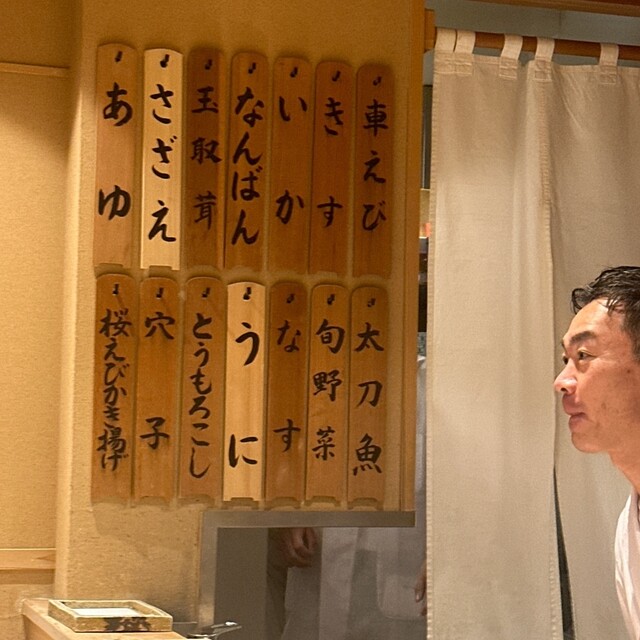 車えび
きす
いか
なんばん
玉取茸
さざえ
あゆ
太刀魚
旬野菜
なす
うに
とうもろこし
穴子
桜えびかき揚げ